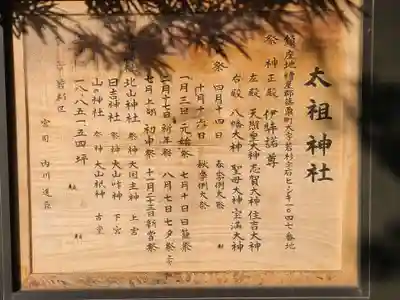 太祖神社
鎮座地 糟屋郡篠栗町大字若杉字石ヒシキ一〇四七番地
祭神 正殿 伊弉諾尊
左殿 天照皇大神 志賀大神 住吉大神
右殿 八幡大神 聖母大神 宝満大神
祭 四月十四日 春祭例大祭
十月十六日 秋祭例大祭
一月三日 元始祭 七月十日 日籠祭
二月十七日 祈年祭 八月七日 七夕祭
七月上卯 初申祭 十一月二十三日 新嘗祭
北山神社 祭神 大国主神 上宮
日吉神社 祭神 大山咋神 下宮
山の神社 祭神 大山祇神
一八八五一五四坪
宮司 内川